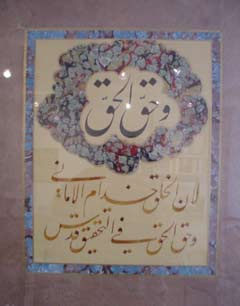 وحق الحق
لان الخلق خدام الأماني
وحق الحق في التحقيق قدس